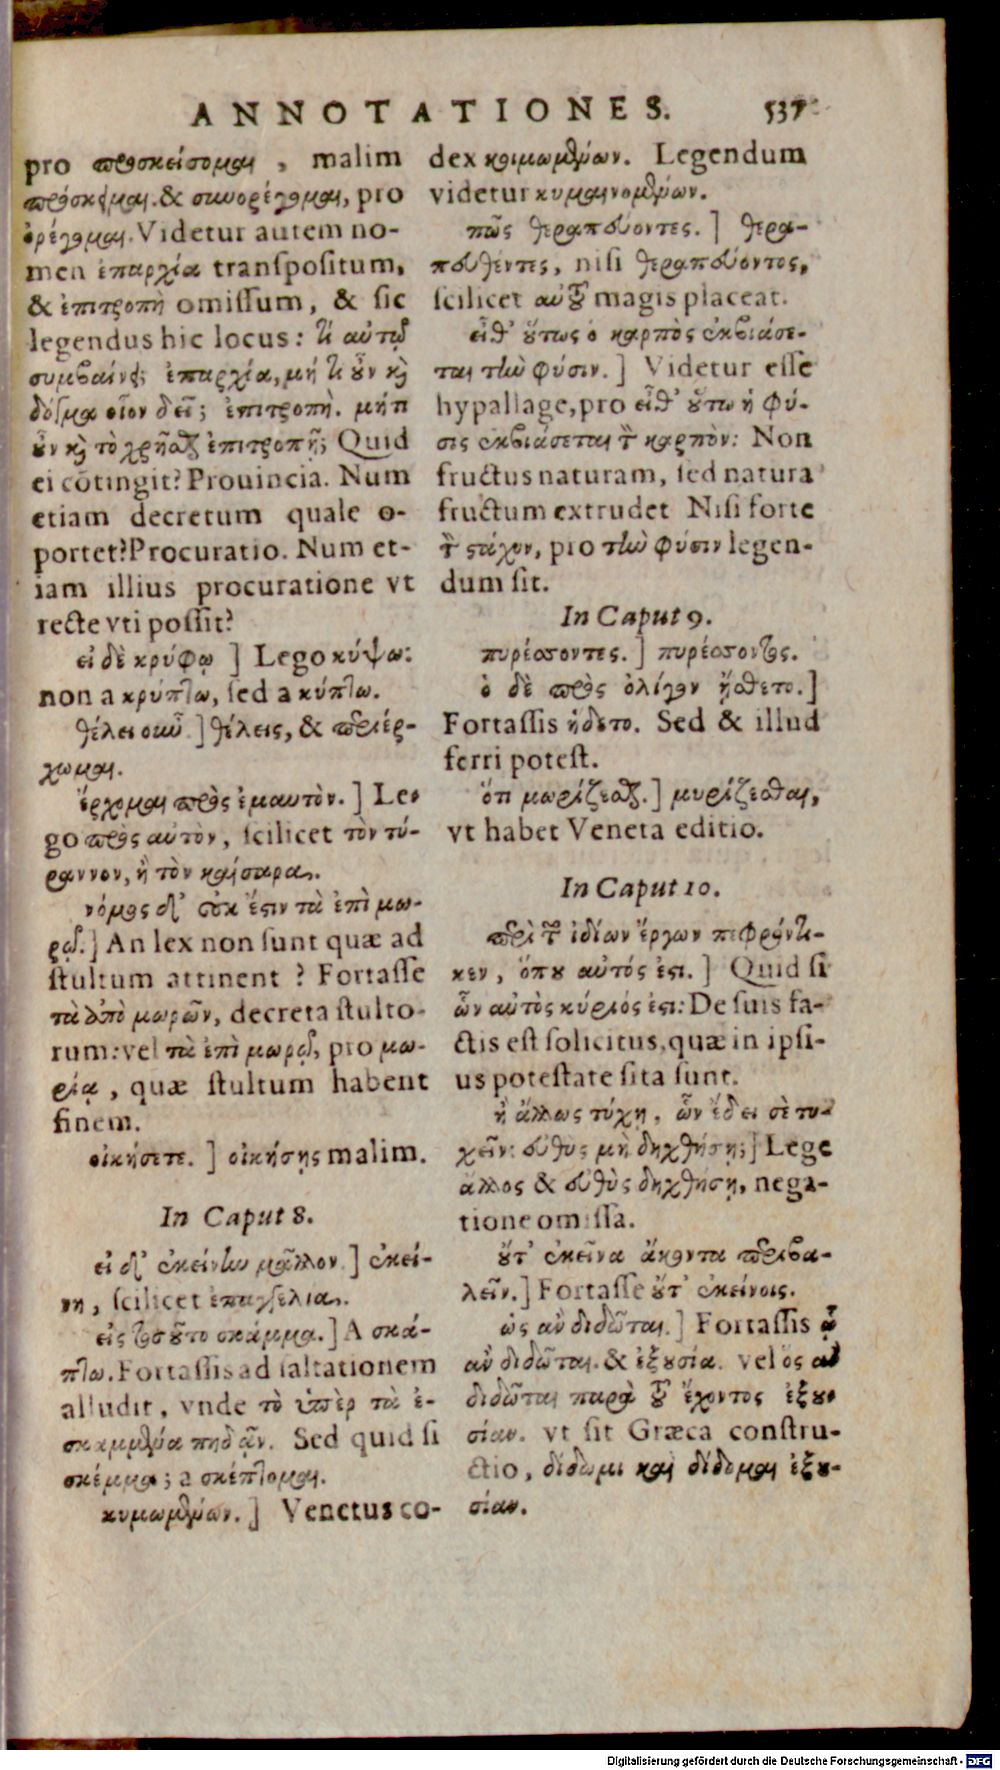 ANNOTATIONES. 537
pro προσκείσομαι, malim
πρόσκειμαι. & συνορέγομαι, pro
ὀρέγομαι. Videtur autem no-
men ἐπαρχία transpositum,
& ἐπιτροπὴ omissum, & sic
legendus hic locus: τί αὐτῷ
συμβαίνει; ἐπαρχία, μή τι οὖν καὶ
δόγμα οἷον δεῖ; ἐπιτροπὴ. μήτι
οὖν καὶ τὸ χρῆσθαι ἐπιτροπῇ; Quid
ei cõtingit? Prouincia. Num
etiam decretum quale o-
portet? Procuratio. Num et-
iam illius procuratione vt
recte vti possit?
εἰ δὲ κρύφω ] Lego κύψω:
non a κρύπτω, sed a κύπτω.
θέλει οὖν ] θέλεις, & περιέρ-
χομαι.
ἔρχομαι πρὸς ἐμαυτὸν.] Le-
go πρὸς αὐτὸν, scilicet τὸν τύ-
ραννον, ἢ τὸν καίσαρα.
νόμος δ' οὐκ ἔστιν τὰ ἐπὶ μω-
ρῷ.] An lex non sunt quæ ad
stultum attinent? Fortasse
τὰ ἀπὸ μωρῶν, decreta stulto-
rum: vel τὰ ἐπὶ μωρῷ, pro μω-
ρίᾳ, quæ stultum habent
finem.
οἰκήσετε. ] οἰκήσῃς malim.
In Caput 8.
εἰ δ' ἐκείνην μᾶλλον ] ἐκεί-
νη, scilicet ἐπαγγελία.
εἰς τοσοῦτο σκάμμα.] A σκά-
πτω. Fortassis ad saltationem
alludit, vnde τὸ ὑπὲρ τὰ ἐ-
σκαμμένα πηδᾷν. Sed quid si
σκέμμα; a σκέπτομαι.
κυμωμένων.] Venetus co-
dex κοιμωμένων. Legendum
videtur κυμαινομένων.
πῶς θεραπεύοντες. ] θερα-
πευθέντες, nisi θεραπεύοντος,
scilicet αὐτοῦ magis placeat.
εἶθ' οὕτως ὁ καρπὸς ἐκβιάσε-
ται τὴν φύσιν. ] Videtur esse
hypallage, pro εἶθ' οὕτω ἡ φύ-
σις ἐκβιάσεται τὸν καρπὸν: Non
fructus naturam, sed natura
fructum extrudet Nisi forte
τὸν στάχυν, pro τὴν φύσιν legen-
dum sit.
In Caput 9.
πυρέσσοντες. ] πυρέσσοντος.
ὁ δὲ πρὸς ὀλίγον ἤσθετο.]
Fortassis ἥδετο. Sed & illud
ferri potest.
ὅτι μωρίζεσθαι.] μυρίζεσθαι,
vt habet Veneta editio.
In Caput 10.
περὶ τῶν ἰδίων ἔργων πεφρόντι-
κεν, ὅπου αὐτός ἐστι. ] Quid si
ὧν αὐτὸς κύριός ἐστι: De suis fa-
ctis est solicitus, quæ in ipsi-
us potestate sita sunt.
ἢ ἄλλως τύχῃ, ὧν ἔδει σὲ τυ-
χεῖν: εὐθὺς μὴ δηχθήσῃ;] Lege
ἄλλος & εὐθὺς δηχθήσῃ, nega-
tione omissa.
οὔτ' ἐκεῖνα ἄκοντα περιβα-
λεῖν.] Fortasse οὔτ' ἐκείνοις.
ὡς ἂν διδῶται.] Fortassis ᾧ
ἂν διδῶται. & ἐξουσία. vel ὃς ἂν
διδῶται παρὰ τοῦ ἔχοντος ἐξου-
σίαν. vt sit Græca constru-
ctio, δίδωμι καὶ δίδομαι ἐξου-
σίαν.
Digitalisierung gefördert durch die Deutsche Forschungsgemeinschaft - DFG